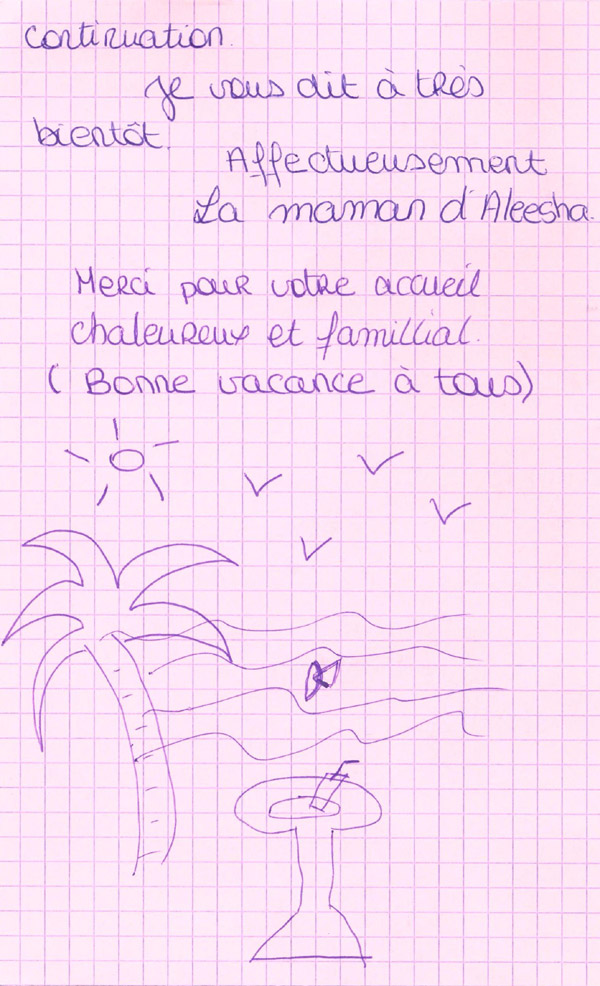 continuation.
Je vous dit à très
bientôt.
Affectueusement
La maman d'Aleesha.
Merci pour votre accueil
chaleureux et famillial.
( Bonne vacance à tous)